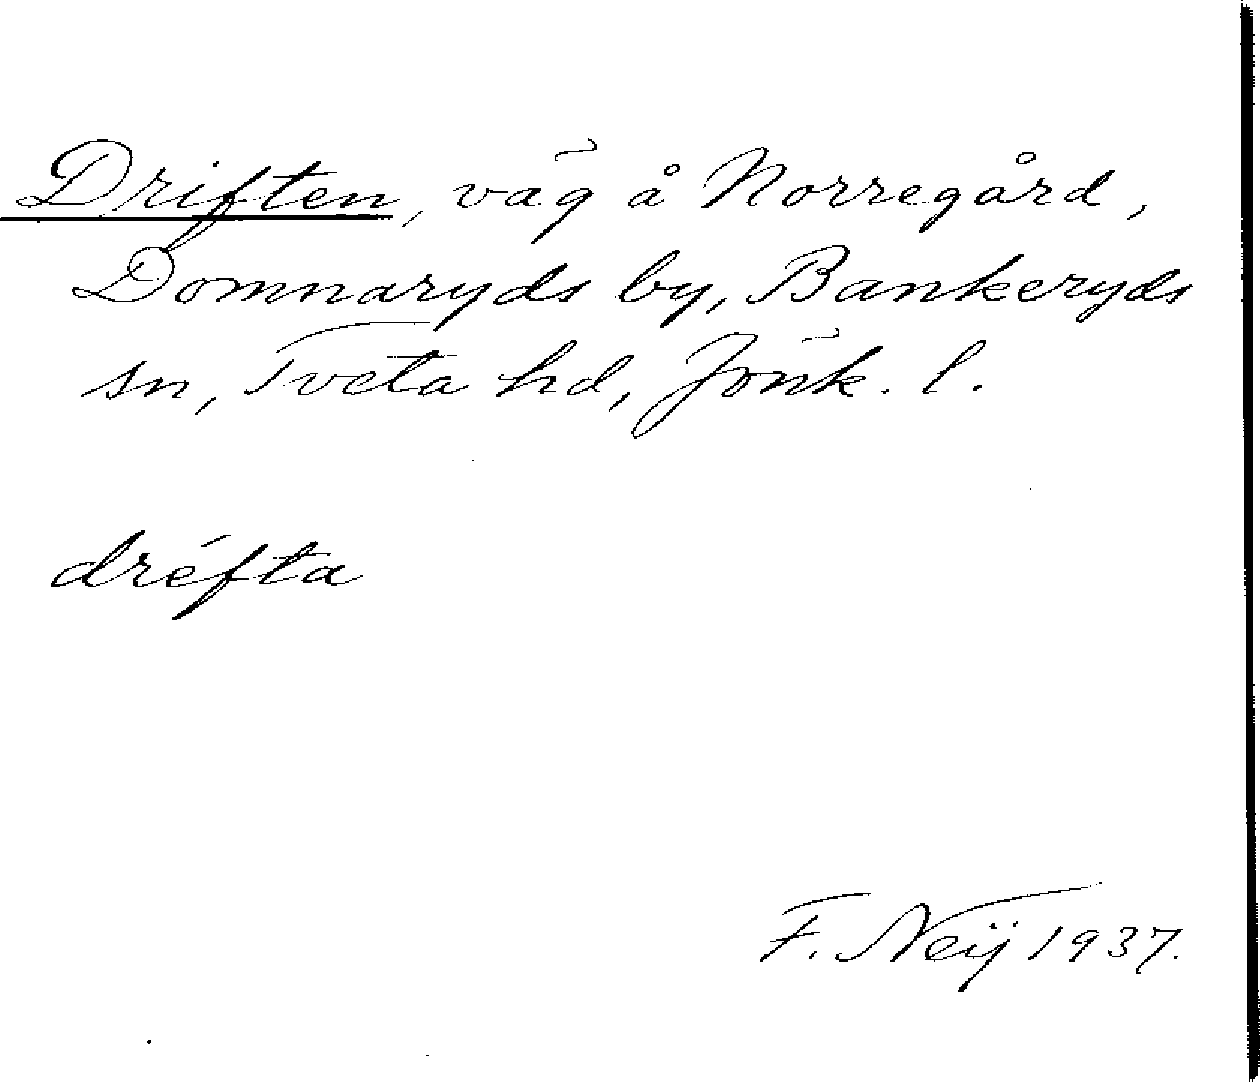 Driften, väg å Norregård,
Domnaryds by, Bankeryds
sn, Tveta hd, Jönk. l.
dréfta
F. Neij 1937.